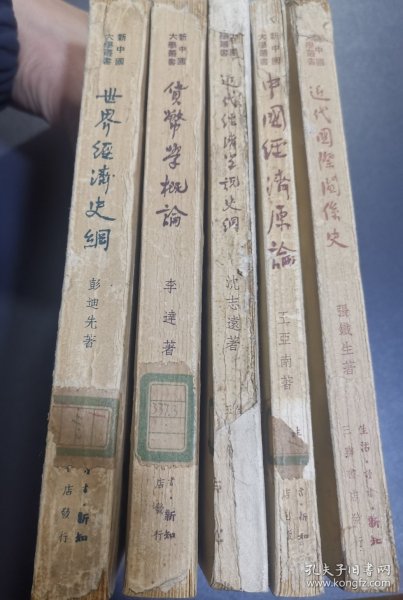 新中國
大學叢書
世界經濟史綱
彭迪先著
書·新知
店發行
新中國
大學叢書
貨幣學概論
李達著
337.3
書·新知
店發行
近代經濟學說史綱
沈志遠著
新中國
大學叢書
中國經濟原論
王亞南著
新知
新中國
近代國際關係史
張鐵生著
生活·讀書·新知
三聯書店發行
孔夫子旧书网
www.kongfz.com